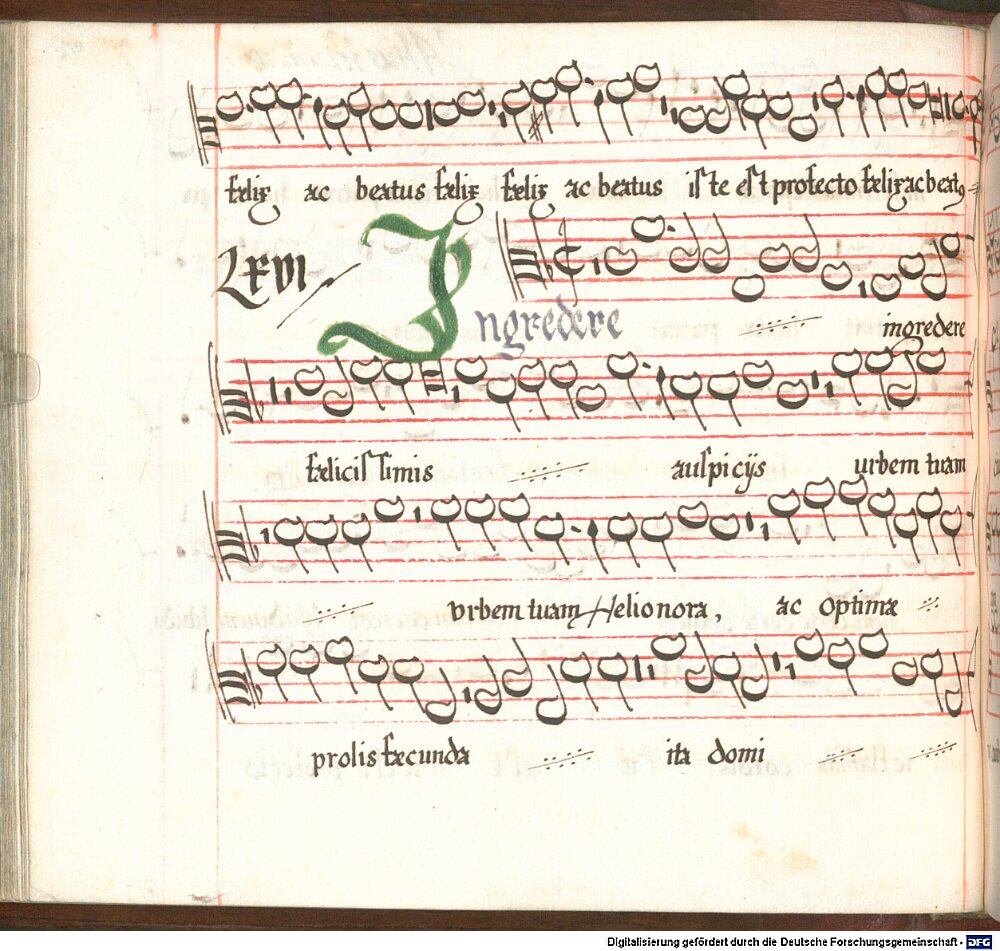 fælix ac beatus fælix fælix ac beatus iste est profecto fælix ac beatꝰ
Lxvi
Ingredere ingredere
fælicissimis auspicijs urbem tuam
vrbem tuam Helionora, ac optimæ
prolis fæcunda ita domi
Digitalisierung gefördert durch die Deutsche Forschungsgemeinschaft - DFG